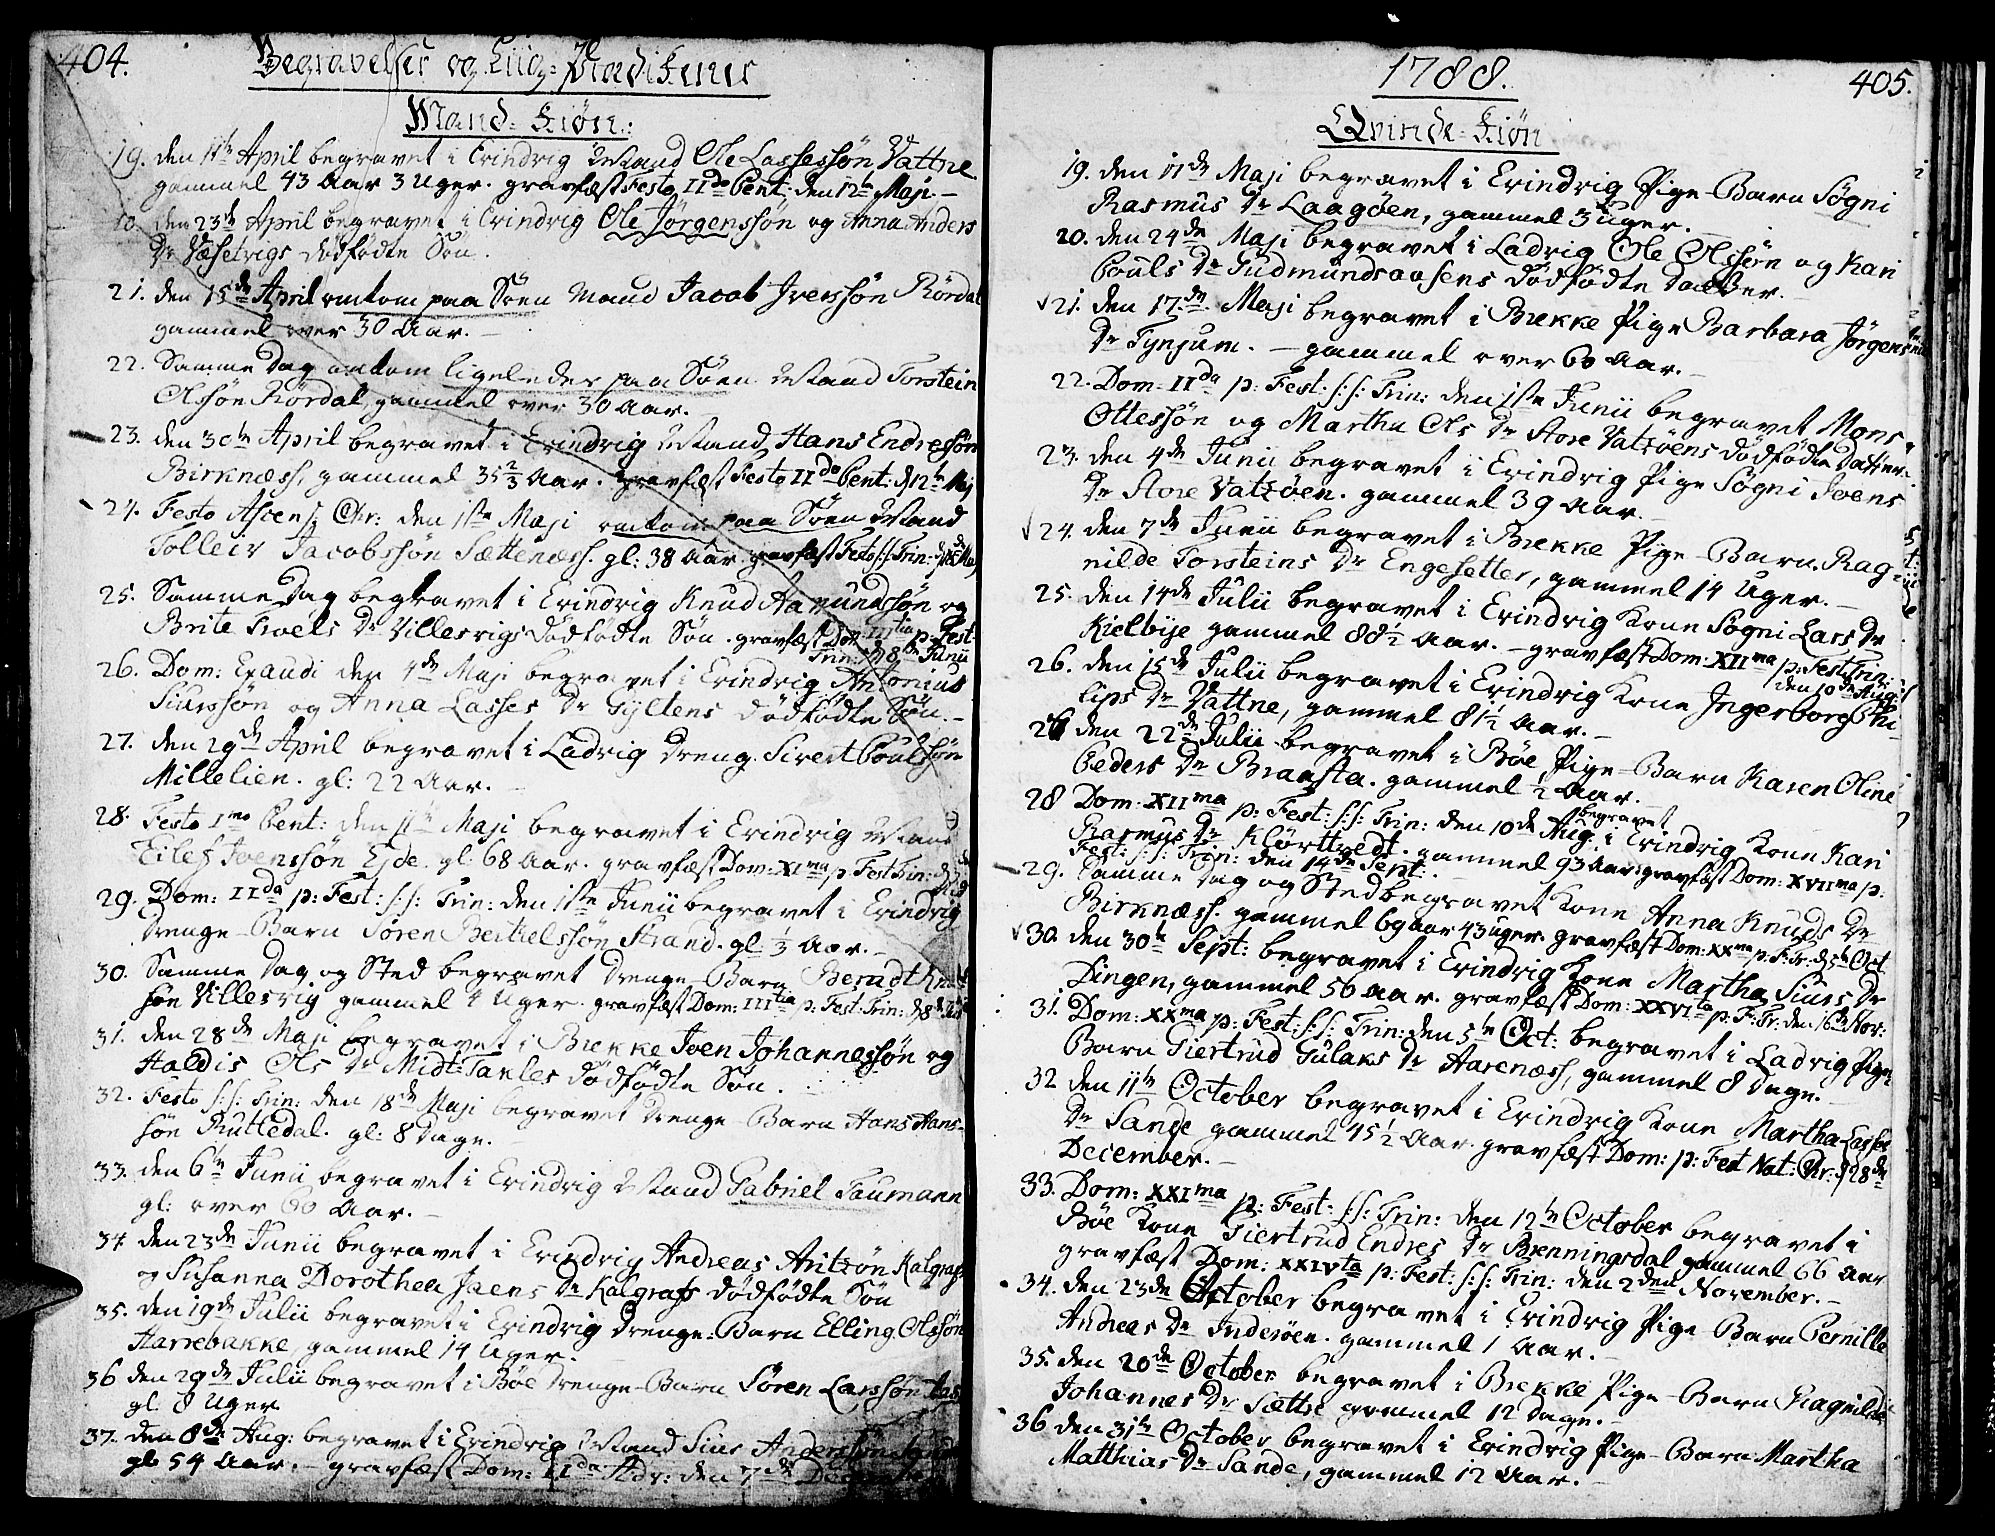 404.
Begravelser og Liig-Prædikener
Mand-Kiøn:
19. den 11te April begravet i Evindvig Mand Ole Lassessøn Vattne
gammel 43 Aar 3 Uger. gravfæst Festo IIdo Pent: den 12te Maji
den 23de April begravet i Evindvig Ole Jørgenssøn og Anna Anders
Dr Væsetvigs dødfødte Søn.
21. den 15de April omkom paa Søen Mand Jacob Iverssøn Rørdal
gammel over 30 Aar.
22. Samme Dag omkom ligeledes paa Søen Mand Torstein
Olssøn Rørdal, gammel over 30 Aar.
23. den 30te April begravet i Evindvig Mand Hans Endressøn
Birknæss, gammel 35 2/3 Aar. gravfæst Festo IIdo Pent: d 12te Maj
24. Festo Ascens: Chr: den 1ste Maji omkom paa Søen Mand
Tolleiv Jacobssøn Sættenæss. gl: 38 Aar. gravfæst Festo S:S: Trin: d 18de Maj
25. Samme Dag begravet i Evindvig Knud Aamundssøn og
Brite Troels Dr Villesvigs dødfødte Søn. gravfæst Dom: IIItia p: Fest
Trin: d 8de Junii
26. Dom: Exaudi den 4de Maji begravet i Evindvig Antonius
Siurssøn og Anna Lasses Dr Gyltens dødfødte Søn.
27. den 29de April begravet i Ladvig Dreng Sivert Poulssøn
Millelien. gl: 22 Aar.
28. Festo Imo Pent: den 11te Maji begravet i Evindvig Mand
Eilef Ivenssøn Ejde. gl: 68 Aar. gravfæst Dom: XIma p Fest Trin: d
29. Dom: IIda p: Fest: S:S: Trin: den 1ste Junii begravet i Evindvig
Drenge-Barn Søren Bertelssøn Strand. gl: 1/3 Aar.
30. Samme Dag og Sted begravet Drenge-Barn Berndt
søn Villesvig gammel 4 Uger. gravfæst Dom: IIItia p: Fest: Trin: d 8de
31. den 28de Maji begravet i Brekke Iven Johannessøn og
Haldis Ols Dr Midt-Tanles dødfødte Søn.
32. Festo S:S: Trin: den 18de Maji begravet Drenge-Barn Hans Hans-
søn Ruttedal. gl: 8 Dage.
33. den 6te Junii begravet i Evindvig Mand Gabriel Taumann
gl: over 60 Aar.
34. den 23de Junii begravet i Evindvig Andreas Antzøn Kalgraf
og Susanna Dorothea Jens Dr Kalgrafs dødfødte Søn
35. den 19de Julii begravet i Evindvig Drenge-Barn Elling Olssøn
Harrebakke, gammel 14 Uger.
36 den 29de Julii begravet i Bøe Drenge-Barn Søren Larssøn
gl. 8 Uger
37. den 8de Aug: begravet i Evindvig Mand Siur Anderssøn
gl: 54 Aar. gravfæst Dom: IIda Adv: den 7de December
1788.
405.
Qvinde-Kiøn
19. den 11de Maji begravet i Evindvig Pige-Barn Søgni
Rasmus Dr Laagøen, gammel 3 Uger.
20. den 24de Maji begravet i Ladvig Ole Olssøn og Kari
Pouls Dr Gudmundsaasens dødfødte Datter.
21. den 17de Maji begravet i Brekke Pige Barbara Jørgens
Dr Tynjum. gammel over 60 Aar.
22. Dom: IIda p: Fest: S:S: Trin: den 1ste Junii begravet Mons
Ottessøn og Martha Ols Dr Store Vatzøens dødfødte Datter.
23. den 4de Junii begravet i Evindvig Pige Søgni Ivens
Dr Store Vatzøen. gammel 39 Aar.
24. den 7de Junii begravet i Brekke Pige-Barn Rag-
nilde Torsteins Dr Engesetter, gammel 14 Uger.
25. den 14de Julii begravet i Evindvig Kone Søgni Lars Dr
Kielbye gammel 88 1/2 Aar. gravfæst Dom: XIIma p: Fest Trin:
den 10de Aug:
26. den 15de Julii begravet i Evindvig Kone Ingerborg Phi-
lips Dr Vattne, gammel 81 1/2 Aar.
den 22de Julii begravet i Bøe Pige-Barn Karen Oline
Peders Dr Braasta. gammel 1/2 Aar.
28 Dom: XIIma p: Fest: S:S: Trin: den 10de Aug: begravet i Evindvig Kone Kari
Rasmus Dr Klørttvedt. gammel 93 Aar gravfæst Dom: XVIIma p:
Fest: S:S: Trin: den 14de Sept:
29. Samme Dag og Sted begravet Kone Anna Knuds Dr
Birknæss. gammel 69 Aar 43 Uger. gravfæst Dom: XXma p: F: Tr: d 5te Oct
30. den 30te Sept: begravet i Evindvig Kone Martha Siurs Dr
Dingen, gammel 56 Aar. gravfæst Dom: XXVIta p: F: Tr: den 16de Nov:
31. Dom: XXma p: Fest: S:S: Trin: den 5te Oct: begravet i Ladvig Pige
Barn Giertrud Gulaks Dr Aarenæss, gammel 8 Dage.
32 den 11te October begravet i Evindvig Kone Martha Lasses
Dr Sande gammel 45 1/2 Aar. gravfæst Dom: p: Fest Nat: Chr: d 28de
December.
33. Dom: XXIma p: Fest: S:S: Trin: den 12te October begravet i
Bøe Kone Giertrud Endres Dr Brenningsdal gammel 66 Aar
gravfæst Dom: XXIVta p: Fest: S:S: Trin: den 2den November.
34. den 23de October begravet i Evindvig Pige-Barn Pernille
Andreas Dr Inderøen. gammel 1 Aar.
35. den 20de October begravet i Brekke Pige-Barn Ragnilde
Johannes Dr Sættre gammel 12 Dage.
36 den 31te October begravet i Evindvig Pige-Barn Martha
Matthias Dr Sande, gammel 12 Aar.